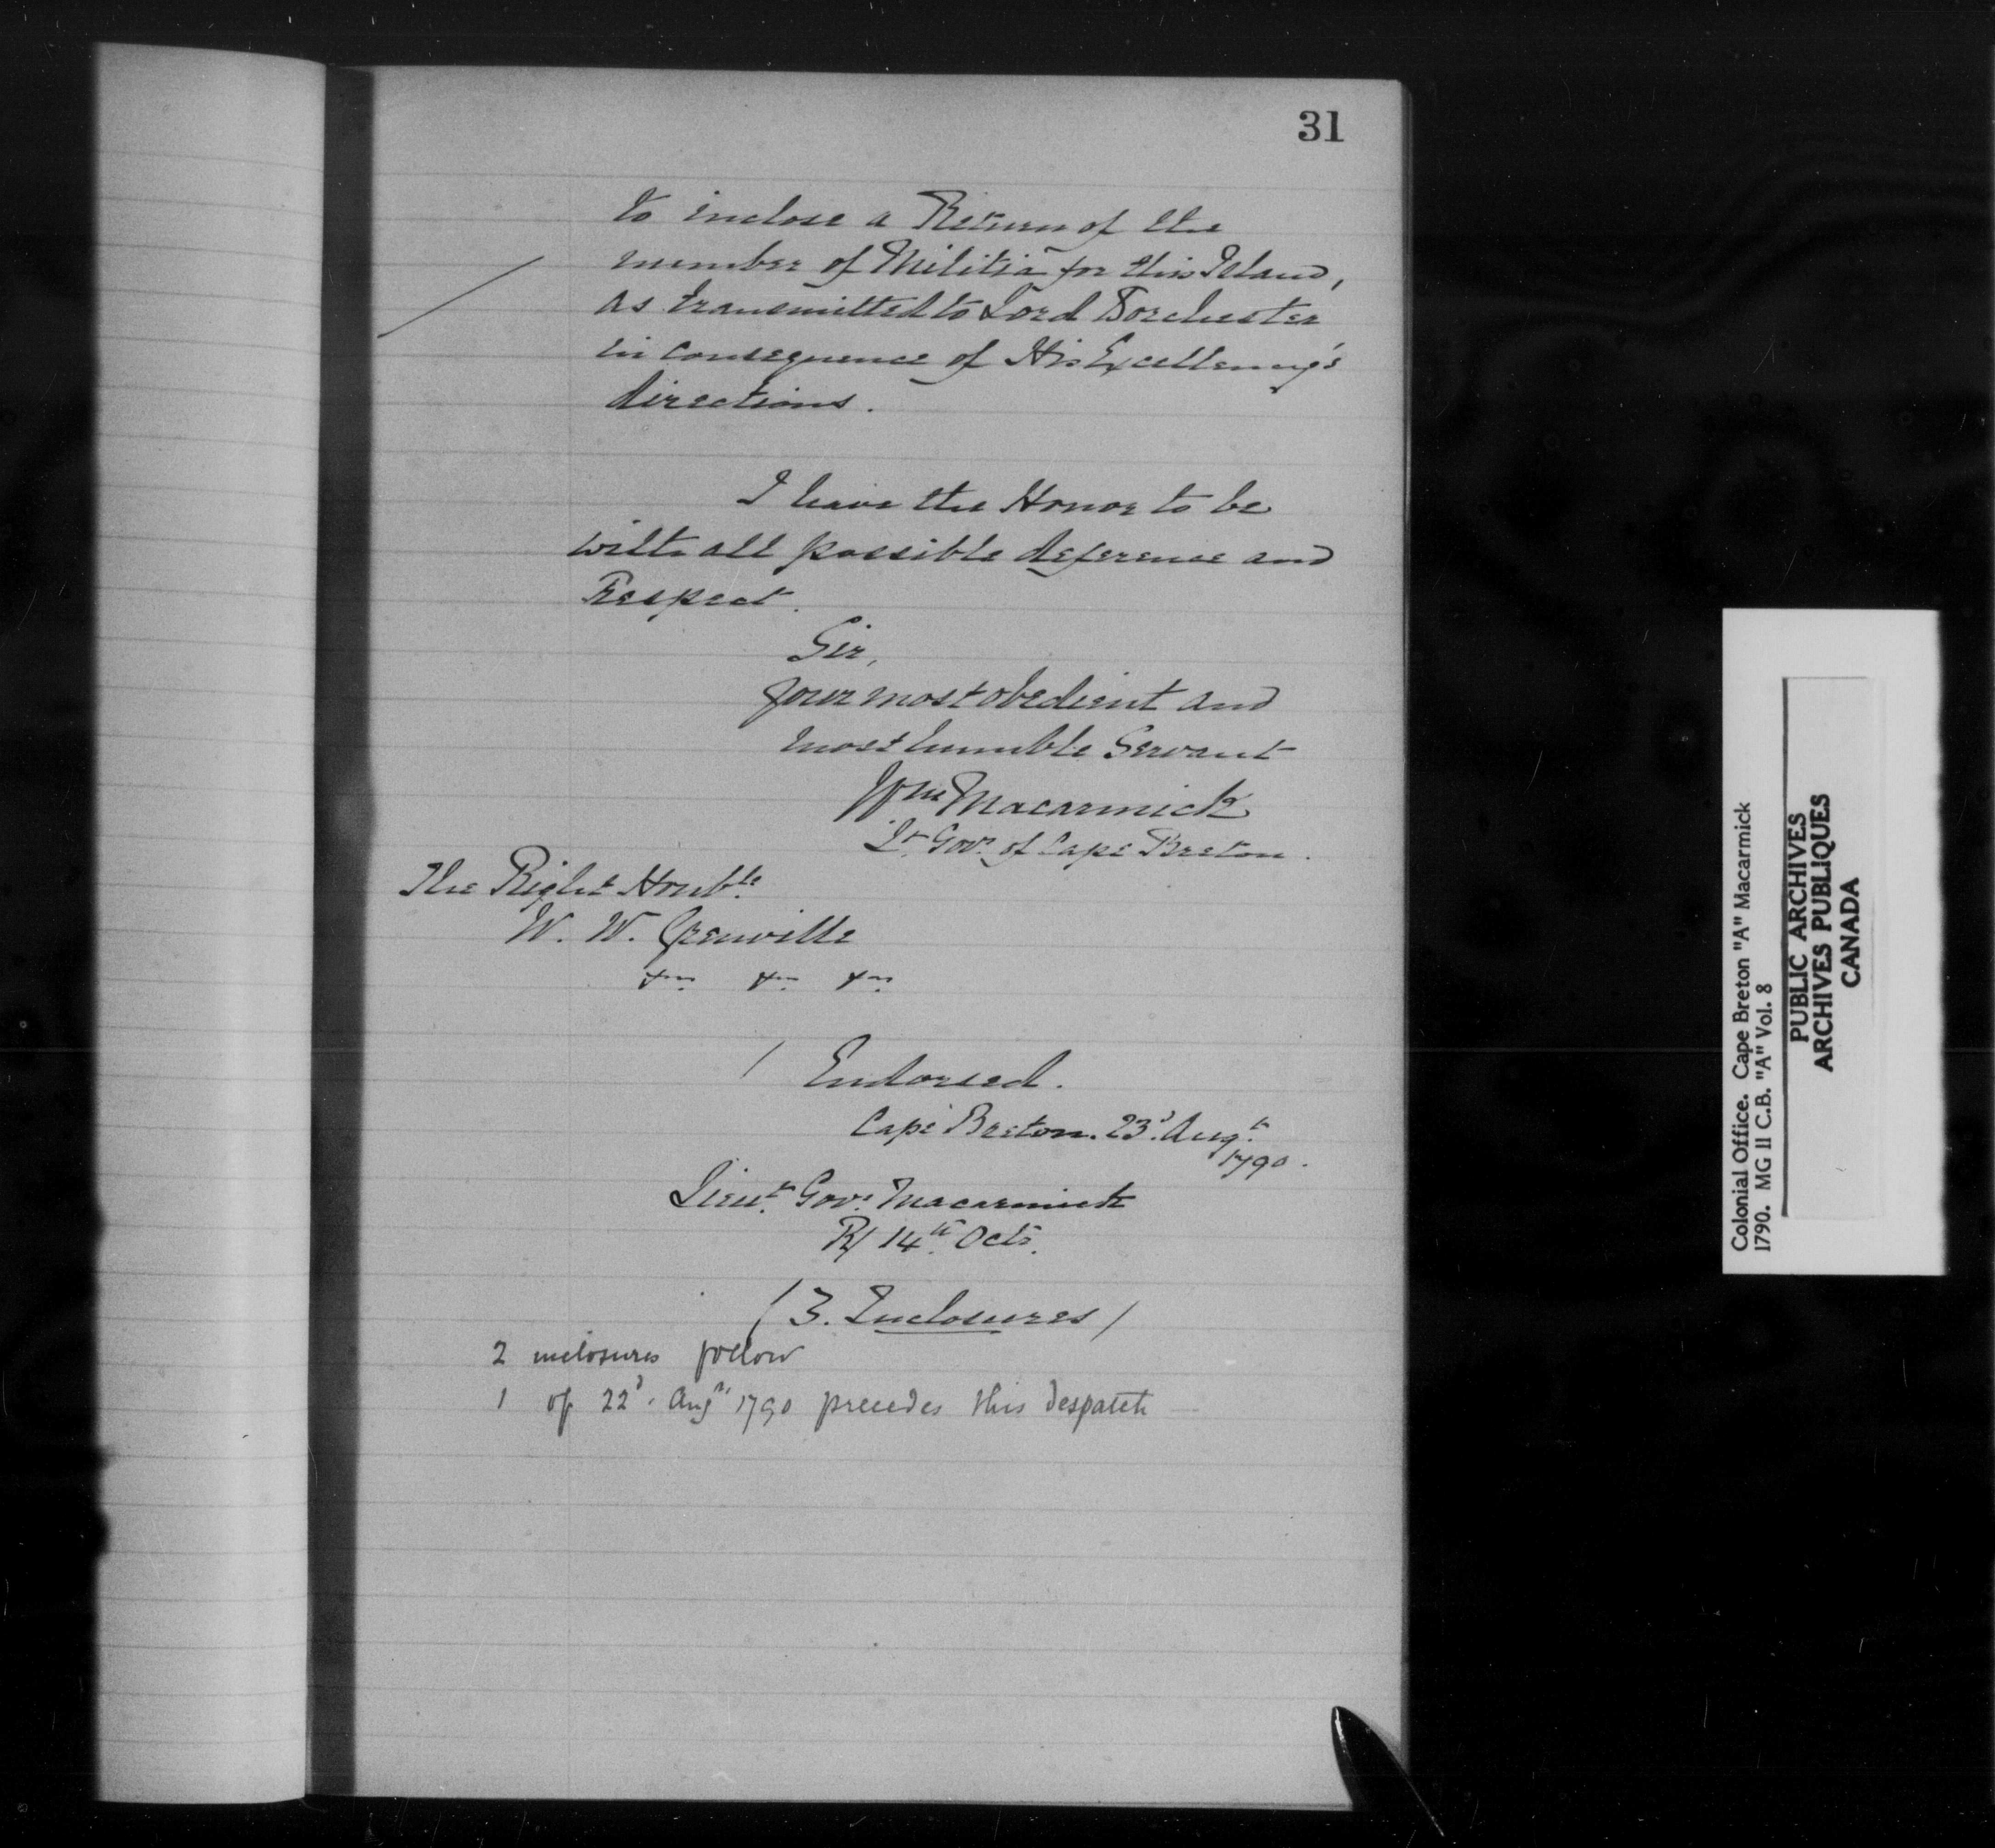 31
to inclose a Return of the
number of Militia for this Island,
as transmitted to Lord Dorchester
in consequence of His Excellency's
directions.
I have the Honor to be
with all possible deference and
Respect.
Sir,
your most obedient and
most humble Servant
Wm Macarmick
Lt. Govr. of Cape Breton.
The Right Honble.
W. W. Grenville
&c. &c. &c.
/ Endorsed.
Cape Breton. 23d. Augt.
1790.
Lieut. Govr. Macarmick
R/ 14th. Octr.
(3. Inclosures)
2 inclosures follow
1 of 22d. Augt 1790 precedes this despatch
Colonial Office. Cape Breton "A" Macarmick
1790. MG II C.B. "A" Vol. 8
PUBLIC ARCHIVES
ARCHIVES PUBLIQUES
CANADA